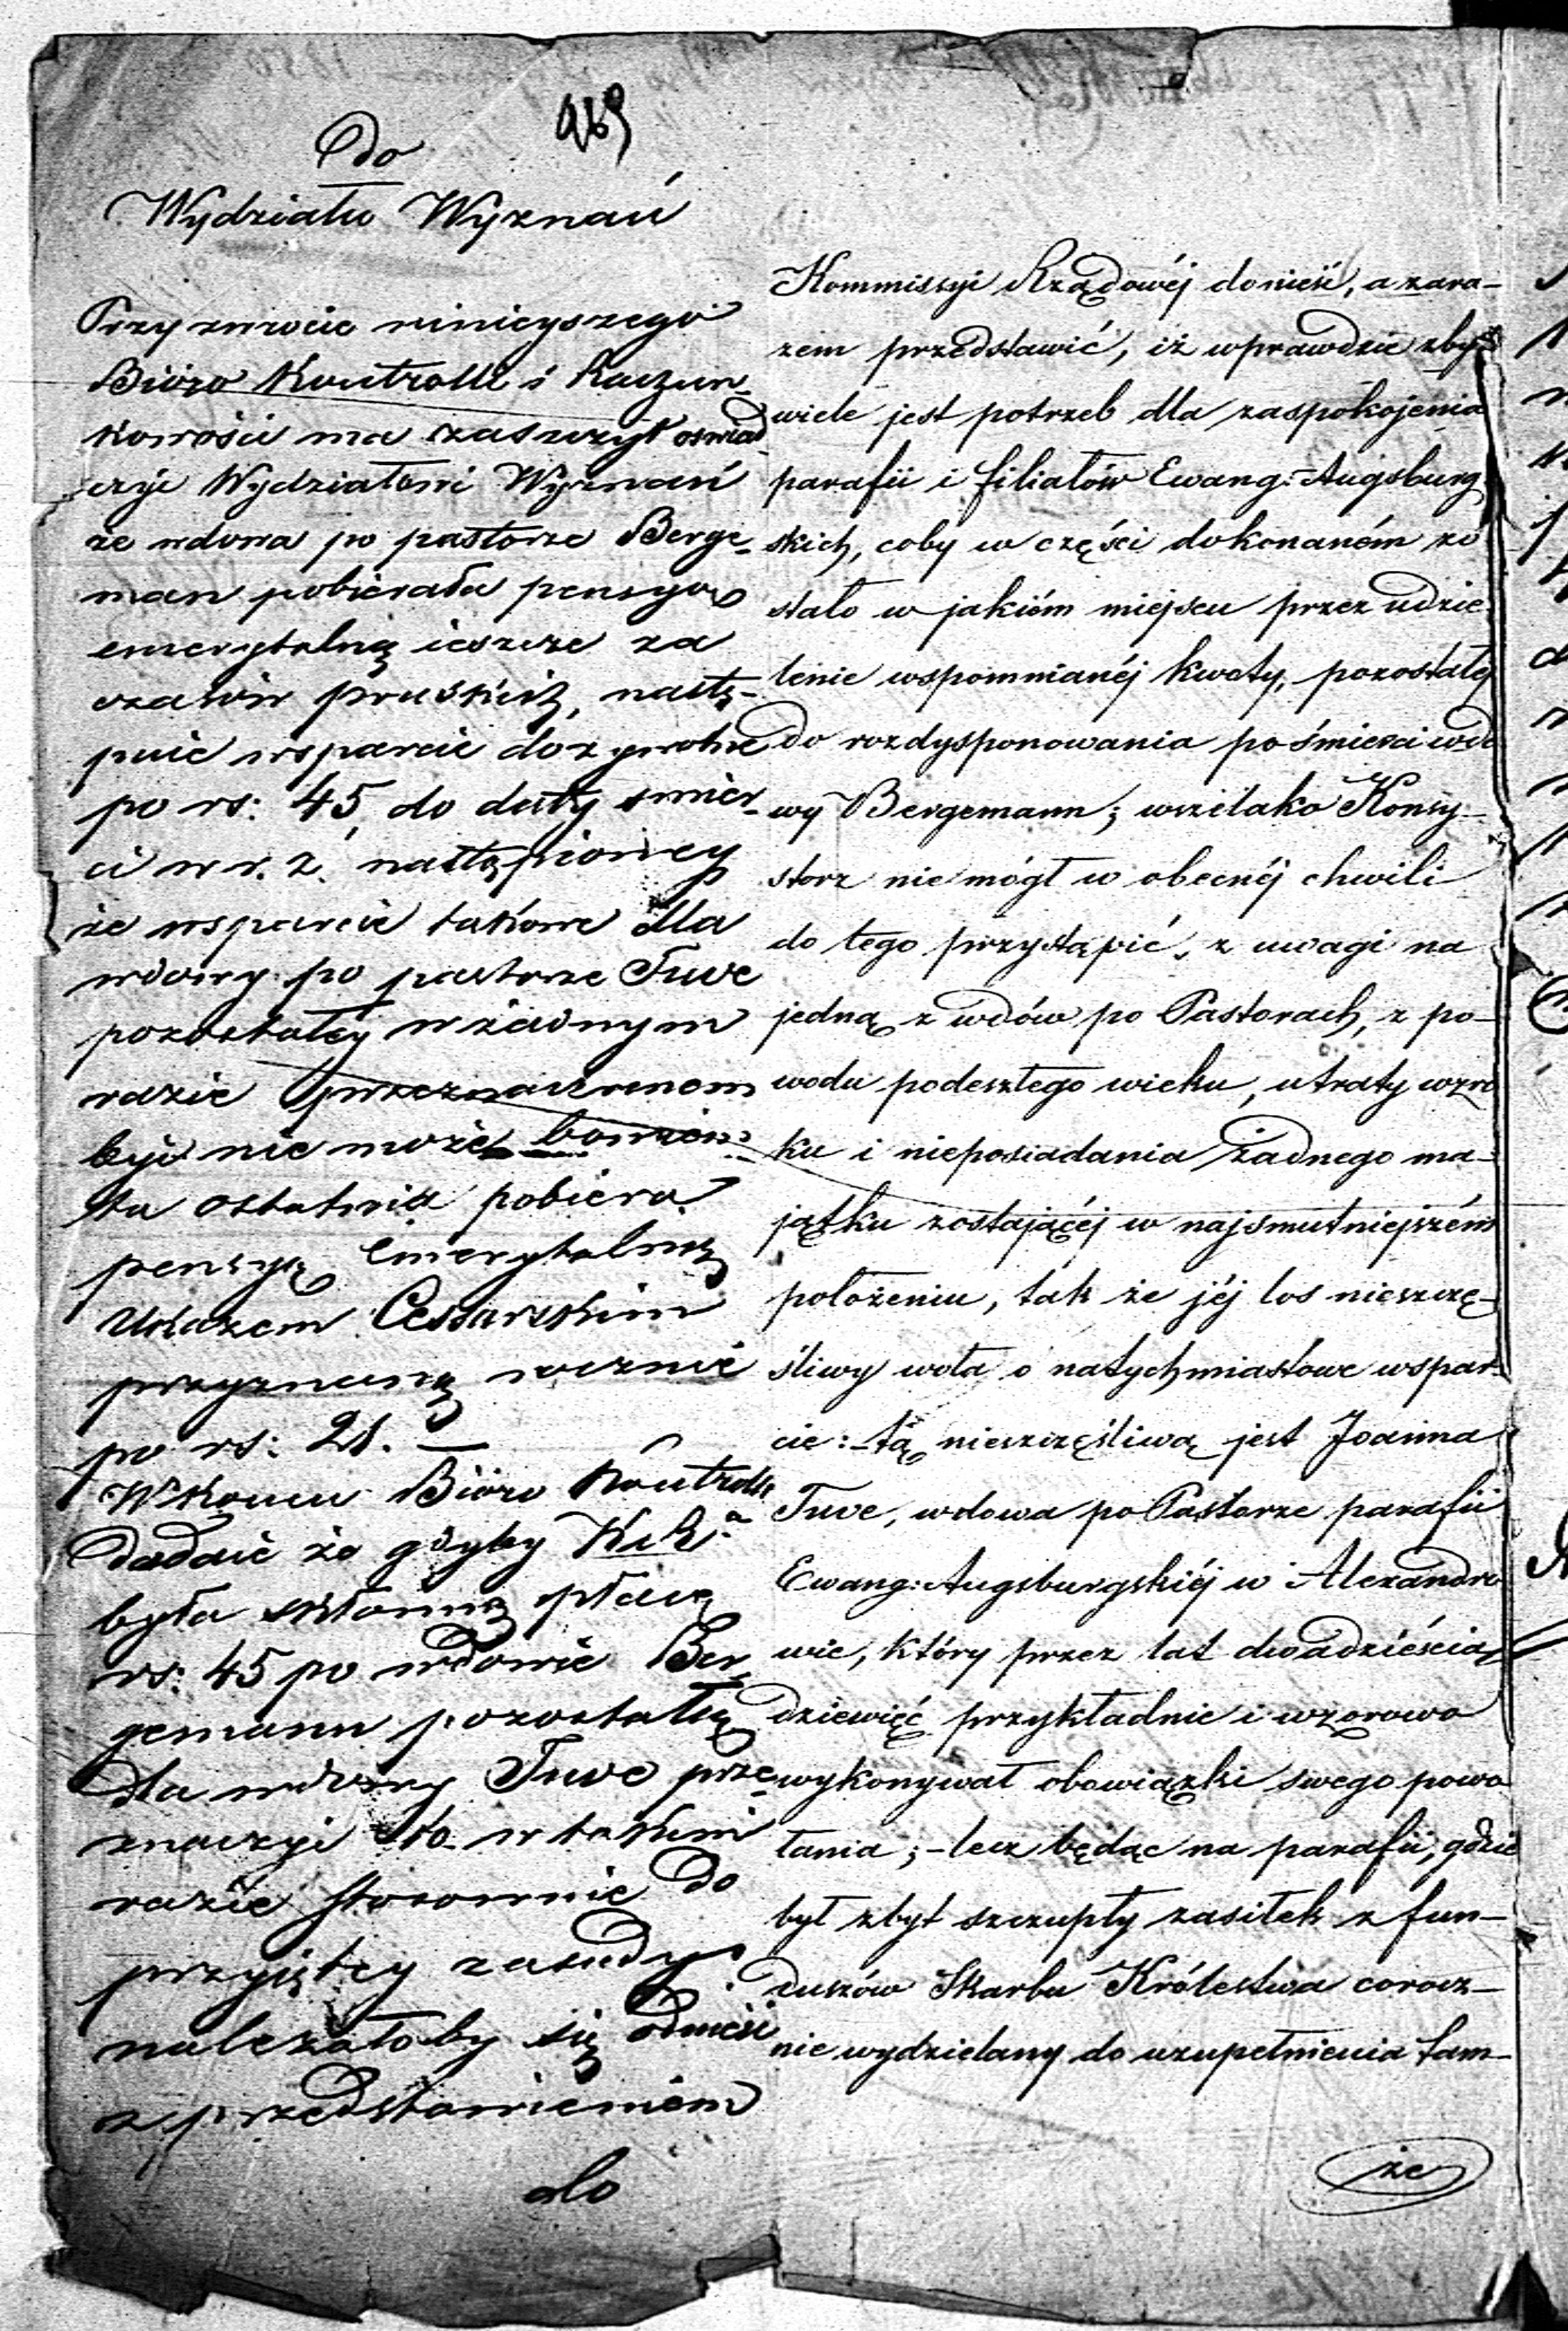 969
Do
Wydziału Wyznań
Przy zwrocie ninieyszego
Bióro Kontrolli i Rachun-
kowości ma zaszczyt oświad
czyć Wydziałowi Wyznań
że wdowa po pastorze Berge-
man pobierała pensyą
emerytalną ieszcze za
czasów pruskich, nastę-
pnie wsparcie dożywotne
po rs: 45, do daty śmier-
ci w r. z. nastąpioney
że wsparcie takowe dla
wdowy po pastorze Tuve
pozostałéy w żadnym
razie przeznaczonem
być nie może bowiem
ta ostatnia pobiera
pensyę Emerytalną
Ukazem Cesarskim
przyznaną rocznie
po rs: 21. —
W końcu Bióro Kontrolli
dodaie że gdyby
była skłonną płacę
rs: 45 po wdowie Ber
gemann pozostałą
dla wdowy Tuve prze-
znaczyć to w takim
razie stosownie do
przyiętey zasady
należałoby się odnieść
z przedstawieniem
do
Kommissyi Rządowéj donieść, a zara-
zem przedstawić, iż wprawdzie zby
wiele jest potrzeb dla zaspokojenia
parafii i filiałów Ewang: Augsburg
skich, coby w części dokonaném zo
stało w jakiém miejscu przez udzie-
lenie wspomnianéj kwoty, pozostałéj
do rozdysponowania po śmierci wdo
wy Bergemann; wszelako Konsy-
storz nie mógł w obecnéj chwili
do tego przystąpić, z uwagi na
jedną z wdów po Pastorach, z po-
wodu podeszłego wieku, utraty wzro
ku i nieposiadania żadnego ma-
jątku zostającéj w najsmutniejszém
położeniu, tak że jéj los nieszczę-
śliwy woła o natychmiastowe wspar-
cie: - tą nieszczęśliwą jest Joanna
Tuve, wdowa po Pastorze parafii
Ewang: Augsburgskiéj w Alexandro
wie, który przez lat dwadzieścia
dziewięć przykładnie i wzorowo
wykonywał obowiązki swego powo
łania; - lecz będąc na parafii, gdzie
był zbyt szczupły zasiłek z fun-
duszów Skarbu Królestwa corocz-
nie wydzielany do uzupełnienia tam-
że